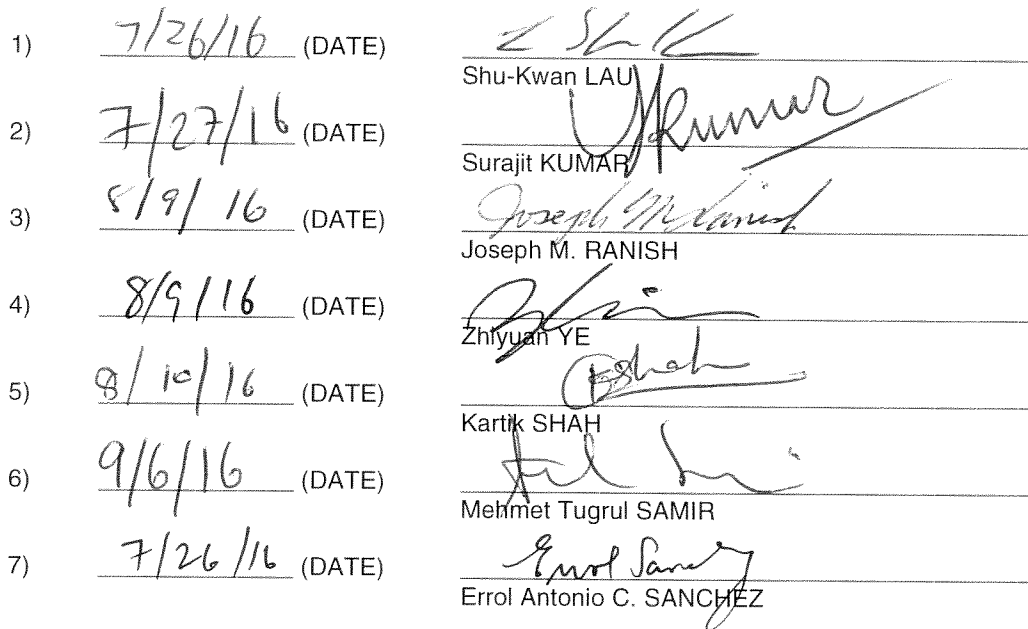 1) 7/26/16 (DATE)
Shu-Kwan LAU
2) 7/27/16 (DATE) Kumar
Surajit KUMAR
3) 8/9/16 (DATE) Joseph M Ranish
Joseph M. RANISH
4) 8/9/16 (DATE)
Zhiyuan YE
5) 8/10/16 (DATE) Shah
Kartik SHAH
6) 9/6/16 (DATE)
Mehmet Tugrul SAMIR
7) 7/26/16 (DATE) Errol Sanchez
Errol Antonio C. SANCHEZ